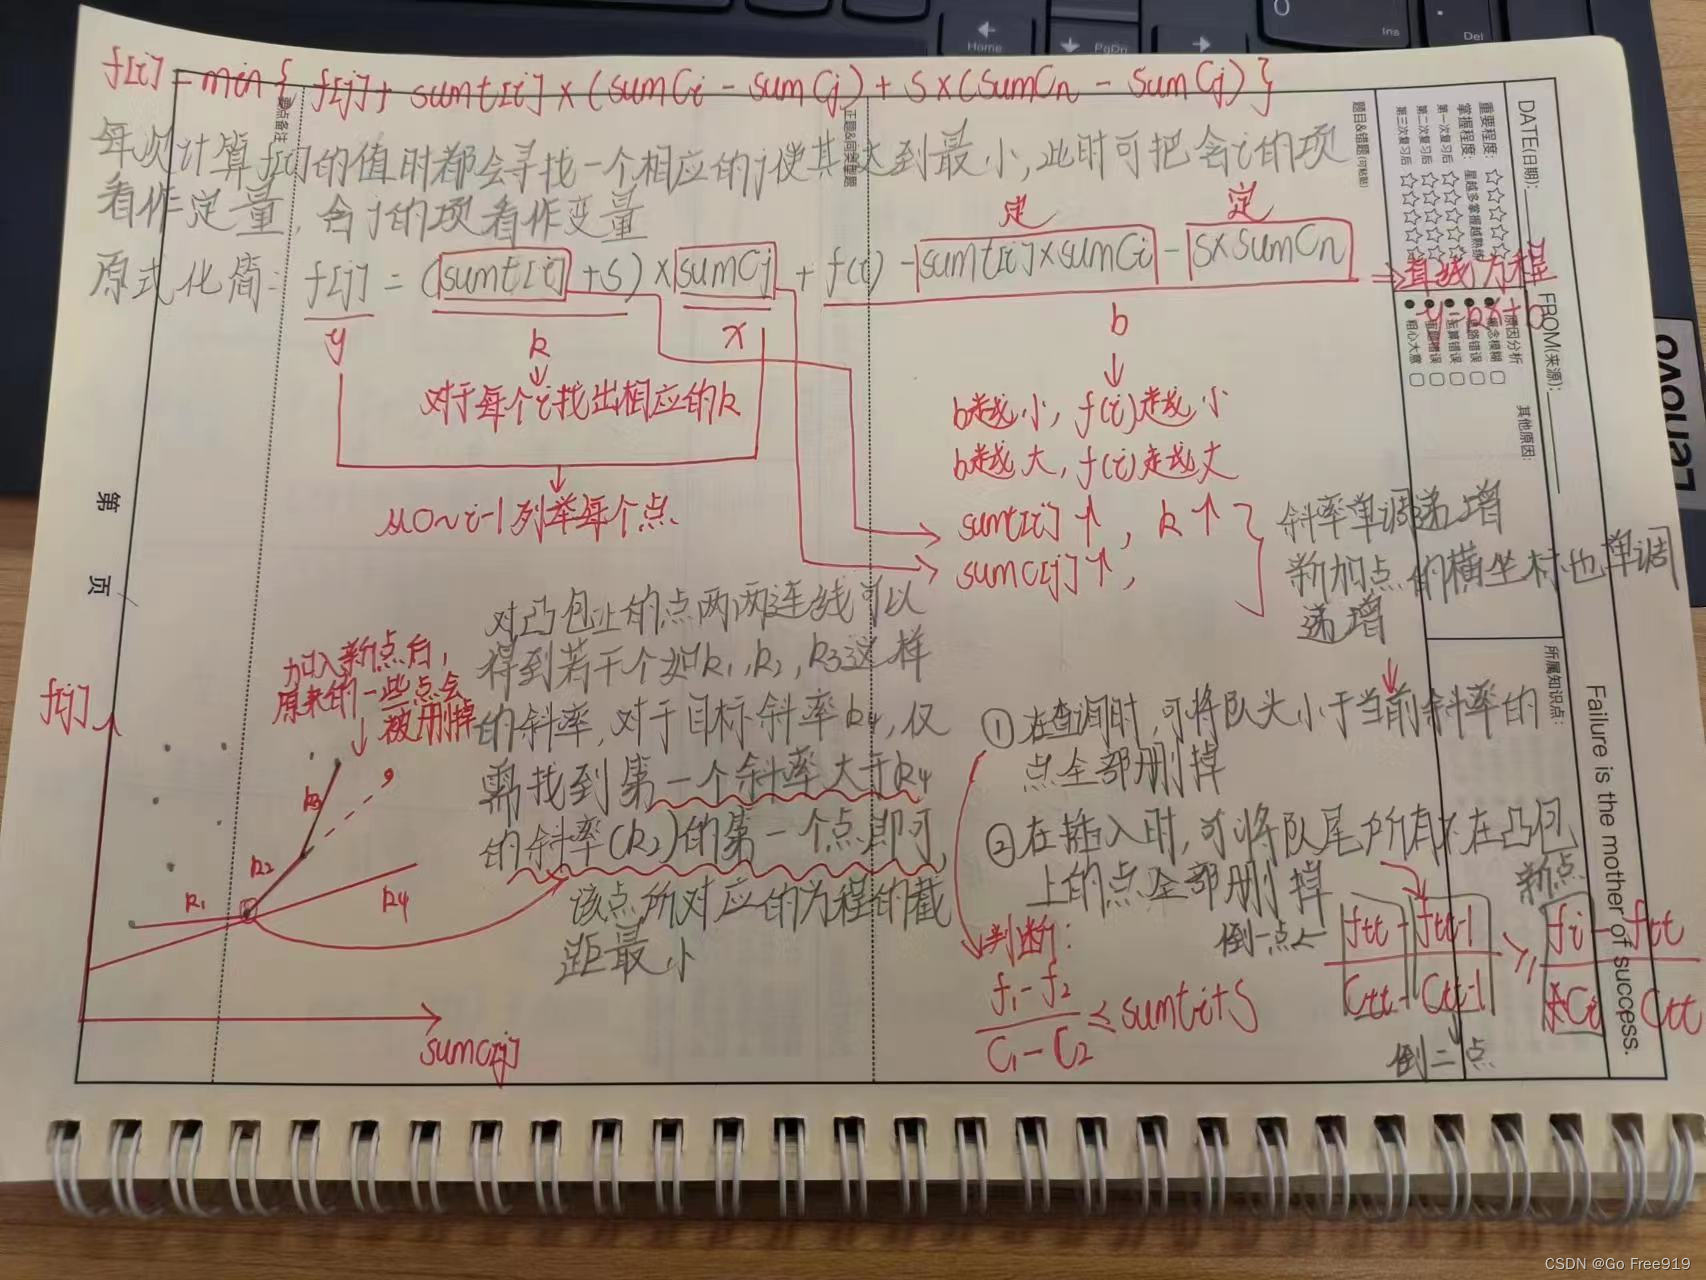 f[i] = min { f[j] + sumt[i] × (sumCi - sumCj) + S × (sumCn - sumCj) }
每次计算f[i]的值时都会寻找一个相应的j使其达到最小,此时可把含i的项
看作定量,含j的项看作变量
定 定
原式化简: f[j] = (sumt[i] + S) × sumCj + f(i) - sumt[i]×sumCi - S×sumCn ⇒ 直线方程
y = kx + b
y k x b
对于每个i找出相应的k
从0~i-1列举每个点
b越小, f(i)越小
b越大, f(i)越大
sumt[i]↑, k↑
sumc[j]↑,
斜率单调递增
新加点的横坐标也单调
递增
加入新点后,
原来的一些点会
被删掉
f[j]
k1
k2
k3
k4
sumc[j]
对凸包上的点两两连线可以
得到若干个如k1, k2, k3这样
的斜率,对于目标斜率k4,仅
需找到第一个斜率大于k4
的斜率(k2)的第一个点即可,
该点所对应的方程的截
距最小
①在查询时,可将队头小于当前斜率的
点全部删掉
②在插入时,可将队尾所有不在凸包
上的点全部删掉
判断:
f1 - f2
C1 - C2
≤ sumti+S
倒一点
ftt - ftt-1
Ctt - Ctt-1
≥
新点
fi - ftt
Ci - Ctt
倒二点
DATE(日期):
FROM(来源):
重要程度: ☆☆☆☆☆
掌握程度: 星越多掌握越熟练
第一次复习后 ☆☆☆☆☆
第二次复习后 ☆☆☆☆☆
第三次复习后 ☆☆☆☆☆
原因分析
概念模糊
思路错误
运算错误
粗心大意
其他原因:
所属知识点:
题目&错题(可粘贴)
正题&同类型题
重点备注
第 页
Failure is the mother of success.
Home
PgDn
Ins
Del
0
Lenovo
CSDN @Go Free919